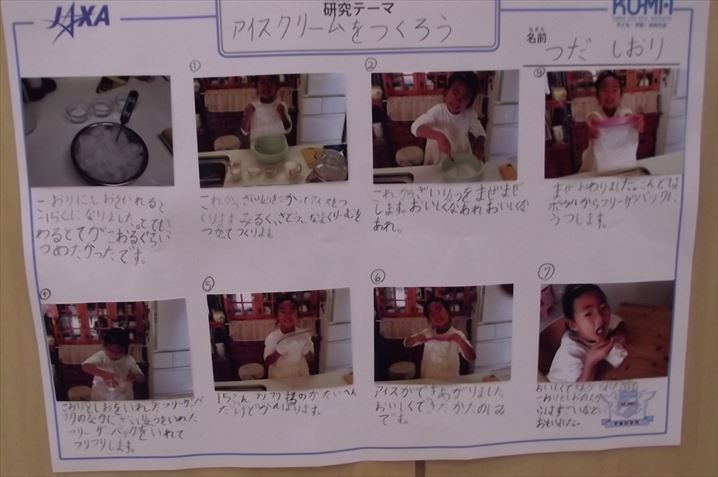 JAXA
研究テーマ
アイスクリームをつくろう
KU-MA
名前
つだ しおり
こおりにしおをいれると
になりました。とても
つめたかったです。
①
これから、ざいりょうをつかってアイスをつ
くります みるく、さとう、なまくりーむを
つかってつくります。
②
これからざいりょうをまぜまぜ
します。おいしくなあれ おいしくな
あれ。
③
まぜおわりました。こんどは
ボウルからフリーザーバックに
うつします。
④
こおりとしおをいれたフリーザーバ
ックのなかにざいりょうをいれた
フリーザーバックをいれて
フリフリします。
⑤
15ふん フリフリするのが たいへん
だけどがんばります。
⑥
アイスができあがりました
おいしくできたかたのしみ
です。
⑦
おいしくて
こおりとしおの
らはすごいなと
おもいました。